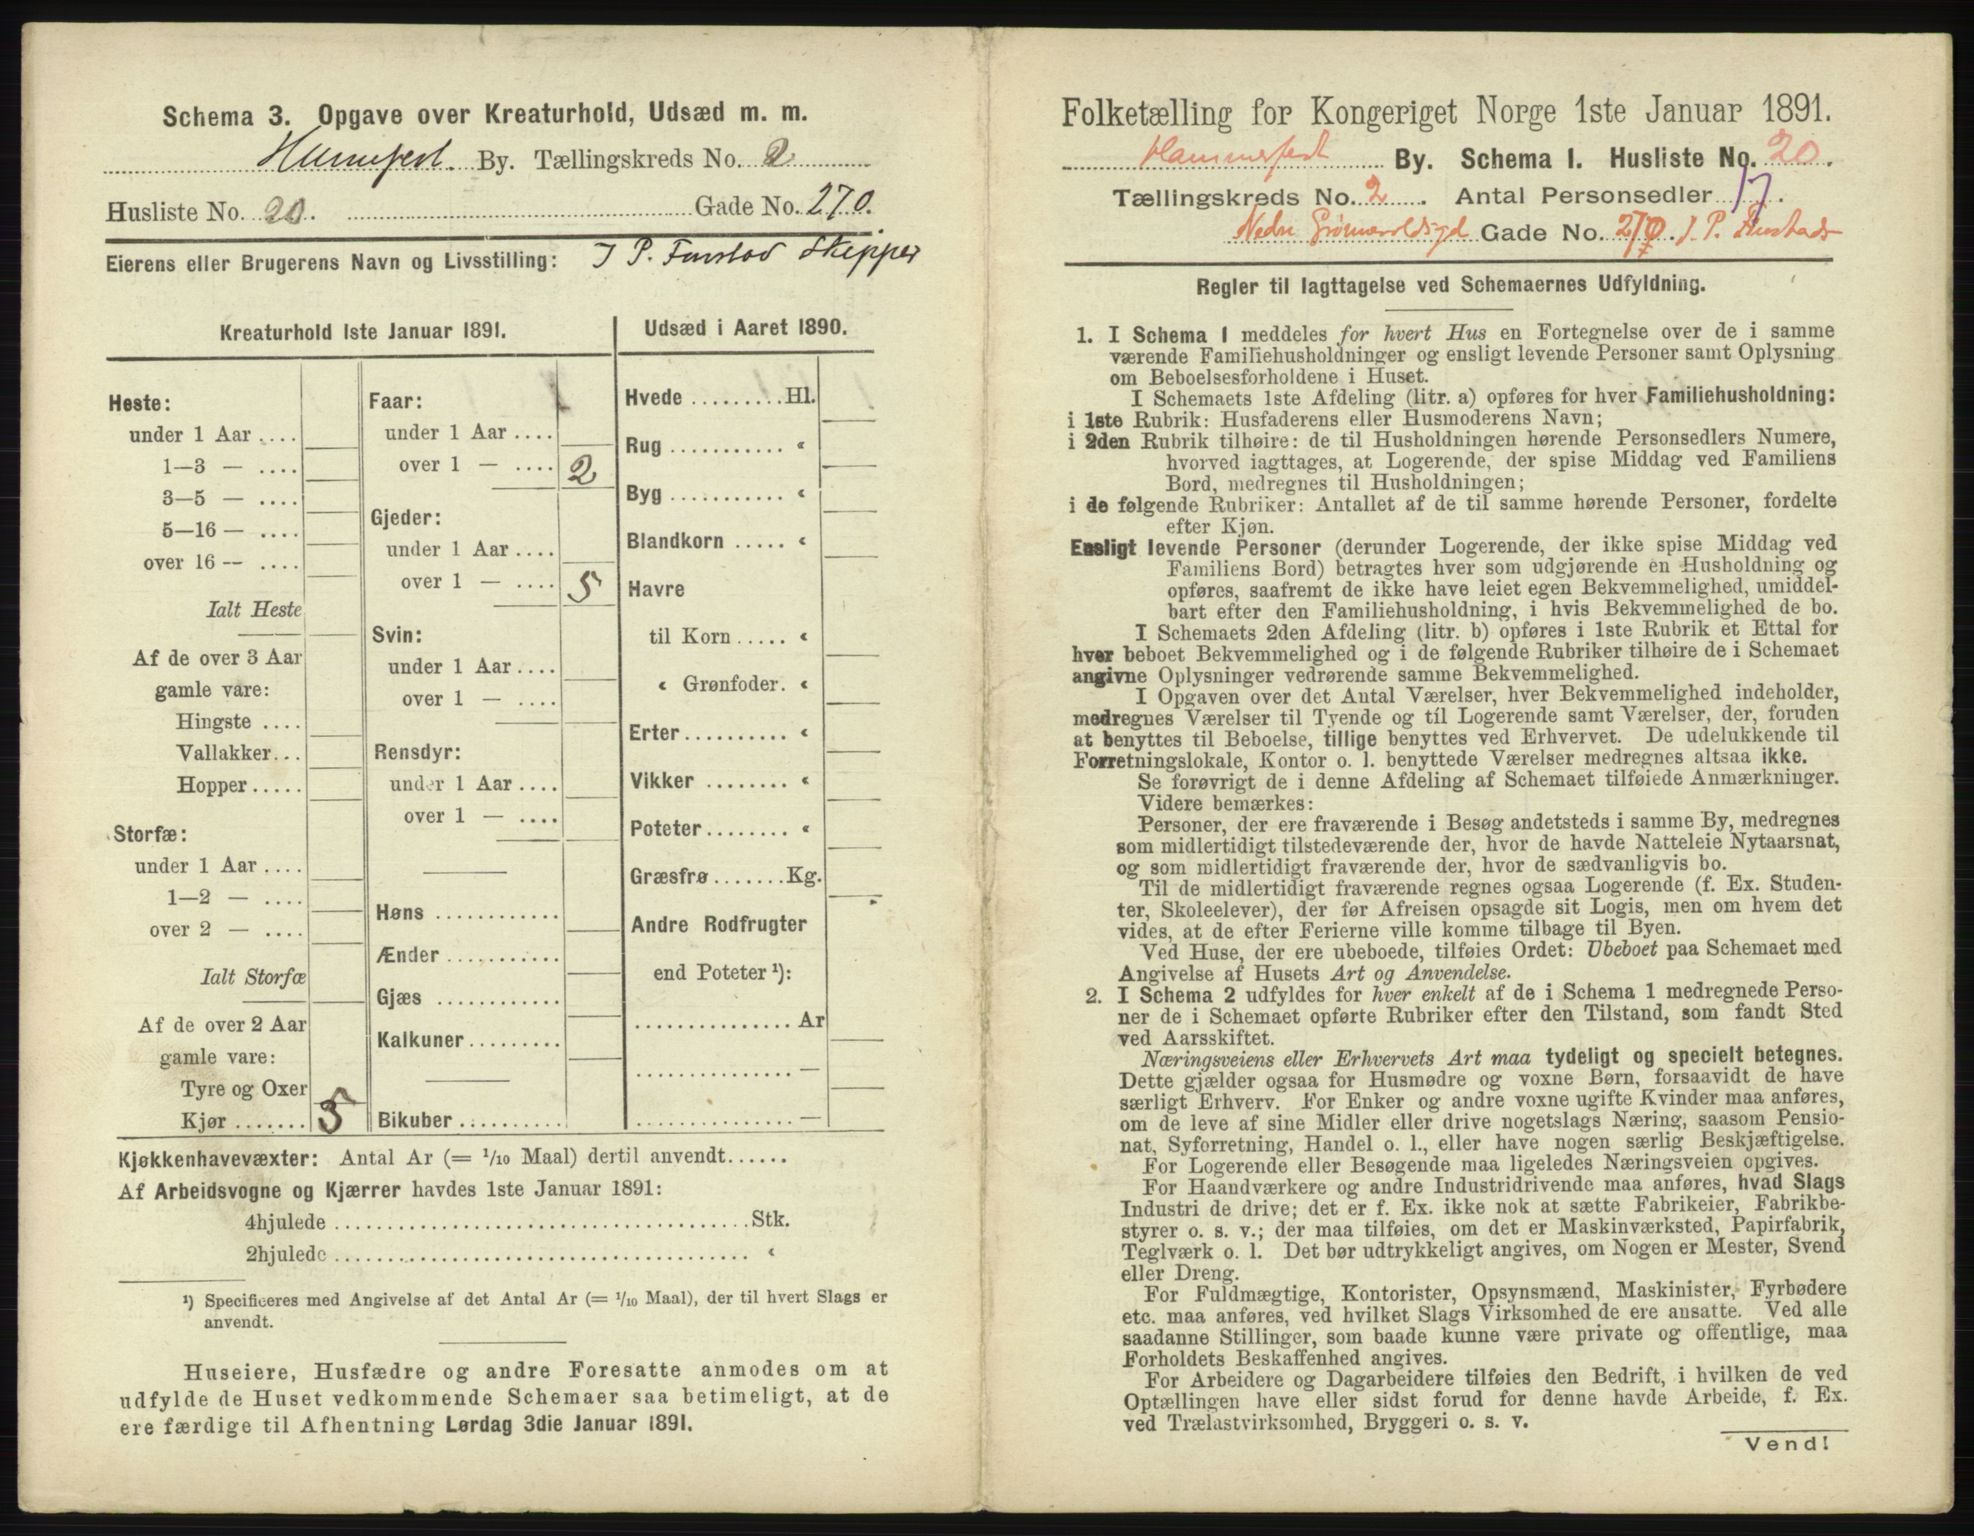 Schema 3. Opgave over Kreaturhold, Udsæd m. m.
By. Tællingskreds No. 2
Husliste No. 20. Gade No. 270.
Eierens eller Brugerens Navn og Livsstilling: J P. Skipper
Kreaturhold 1ste Januar 1891.
Heste:
under 1 Aar ....
1—3 — ....
3—5 — ....
5—16 — ....
over 16 — ....
Ialt Heste
Af de over 3 Aar
gamle vare:
Hingste ....
Vallakker...
Hopper.....
Storfæ:
under 1 Aar ....
1—2 — ....
over 2 — ....
Ialt Storfæ
Af de over 2 Aar
gamle vare:
Tyre og Oxer
Kjør ....... 5
Faar:
under 1 Aar ....
over 1 — .... 2
Gjeder:
under 1 Aar ....
over 1 — .... 5
Svin:
under 1 Aar ....
over 1 — ....
Rensdyr:
under 1 Aar ....
over 1 — ....
Høns ............
Ænder ...........
Gjæs ............
Kalkuner.........
Bikuber ..........
Udsæd i Aaret 1890.
Hvede .........Hl.
Rug ........... «
Byg ........... «
Blandkorn ..... «
Havre
til Korn ..... «
« Grønfoder. «
Erter.......... «
Vikker ........ «
Poteter........ «
Græsfrø .......Kg.
Andre Rodfrugter
end Poteter ¹):
............... Ar
............... —
............... —
Kjøkkenhavevæxter: Antal Ar (= 1/10 Maal) dertil anvendt......
Af Arbeidsvogne og Kjærrer havdes 1ste Januar 1891:
4hjulede ........................................Stk.
2hjulede ........................................ «
¹) Specificeres med Angivelse af det Antal Ar (= 1/10 Maal), der til hvert Slags er
anvendt.
Huseiere, Husfædre og andre Foresatte anmodes om at
udfylde de Huset vedkommende Schemaer saa betimeligt, at de
ere færdige til Afhentning Lørdag 3die Januar 1891.
Folketælling for Kongeriget Norge 1ste Januar 1891.
Hammerfest By. Schema 1. Husliste No. 20.
Tællingskreds No. 2. Antal Personsedler 17.
Nedre Gade No. 270. J. P.
Regler til Iagttagelse ved Schemaernes Udfyldning.
1. I Schema 1 meddeles for hvert Hus en Fortegnelse over de i samme
værende Familiehusholdninger og ensligt levende Personer samt Oplysning
om Beboelsesforholdene i Huset.
I Schemaets 1ste Afdeling (litr. a) opføres for hver Familiehusholdning:
i 1ste Rubrik: Husfaderens eller Husmoderens Navn;
i 2den Rubrik tilhøire: de til Husholdningen hørende Personsedlers Numere,
hvorved iagttages, at Logerende, der spise Middag ved Familiens
Bord, medregnes til Husholdningen;
i de følgende Rubriker: Antallet af de til samme hørende Personer, fordelte
efter Kjøn.
Ensligt levende Personer (derunder Logerende, der ikke spise Middag ved
Familiens Bord) betragtes hver som udgjørende en Husholdning og
opføres, saafremt de ikke have leiet egen Bekvemmelighed, umiddel-
bart efter den Familiehusholdning, i hvis Bekvemmelighed de bo.
I Schemaets 2den Afdeling (litr. b) opføres i 1ste Rubrik et Ettal for
hver beboet Bekvemmelighed og i de følgende Rubriker tilhøire de i Schemaet
angivne Oplysninger vedrørende samme Bekvemmelighed.
I Opgaven over det Antal Værelser, hver Bekvemmelighed indeholder,
medregnes Værelser til Tyende og til Logerende samt Værelser, der, foruden
at benyttes til Beboelse, tillige benyttes ved Erhvervet. De udelukkende til
Forretningslokale, Kontor o. l. benyttede Værelser medregnes altsaa ikke.
Se forøvrigt de i denne Afdeling af Schemaet tilføiede Anmærkninger.
Videre bemærkes:
Personer, der ere fraværende i Besøg andetsteds i samme By, medregnes
som midlertidigt tilstedeværende der, hvor de havde Natteleie Nytaarsnat,
og som midlertidigt fraværende der, hvor de sædvanligvis bo.
Til de midlertidigt fraværende regnes ogsaa Logerende (f. Ex. Studen-
ter, Skoleelever), der før Afreisen opsagde sit Logis, men om hvem det
vides, at de efter Ferierne ville komme tilbage til Byen.
Ved Huse, der ere ubeboede, tilføies Ordet: Ubeboet paa Schemaet med
Angivelse af Husets Art og Anvendelse.
2. I Schema 2 udfyldes for hver enkelt af de i Schema 1 medregnede Perso-
ner de i Schemaet opførte Rubriker efter den Tilstand, som fandt Sted
ved Aarsskiftet.
Næringsveiens eller Erhvervets Art maa tydeligt og specielt betegnes.
Dette gjælder ogsaa for Husmødre og voxne Børn, forsaavidt de have
særligt Erhverv. For Enker og andre voxne ugifte Kvinder maa anføres,
om de leve af sine Midler eller drive nogetslags Næring, saasom Pensio-
nat, Syforretning, Handel o. l., eller have nogen særlig Beskjæftigelse.
For Logerende eller Besøgende maa ligeledes Næringsveien opgives.
For Haandværkere og andre Industridrivende maa anføres, hvad Slags
Industri de drive; det er f. Ex. ikke nok at sætte Fabrikeier, Fabrikbe-
styrer o. s. v.; der maa tilføies, om det er Maskinværksted, Papirfabrik,
Teglværk o. l. Det bør udtrykkeligt angives, om Nogen er Mester, Svend
eller Dreng.
For Fuldmægtige, Kontorister, Opsynsmænd, Maskinister, Fyrbødere
etc. maa anføres, ved hvilket Slags Virksomhed de ere ansatte. Ved alle
saadanne Stillinger, som baade kunne være private og offentlige, maa
Forholdets Beskaffenhed angives.
For Arbeidere og Dagarbeidere tilføies den Bedrift, i hvilken de ved
Optællingen have eller sidst forud for denne havde Arbeide, f. Ex.
ved Trælastvirksomhed, Bryggeri o. s. v.
Vend!